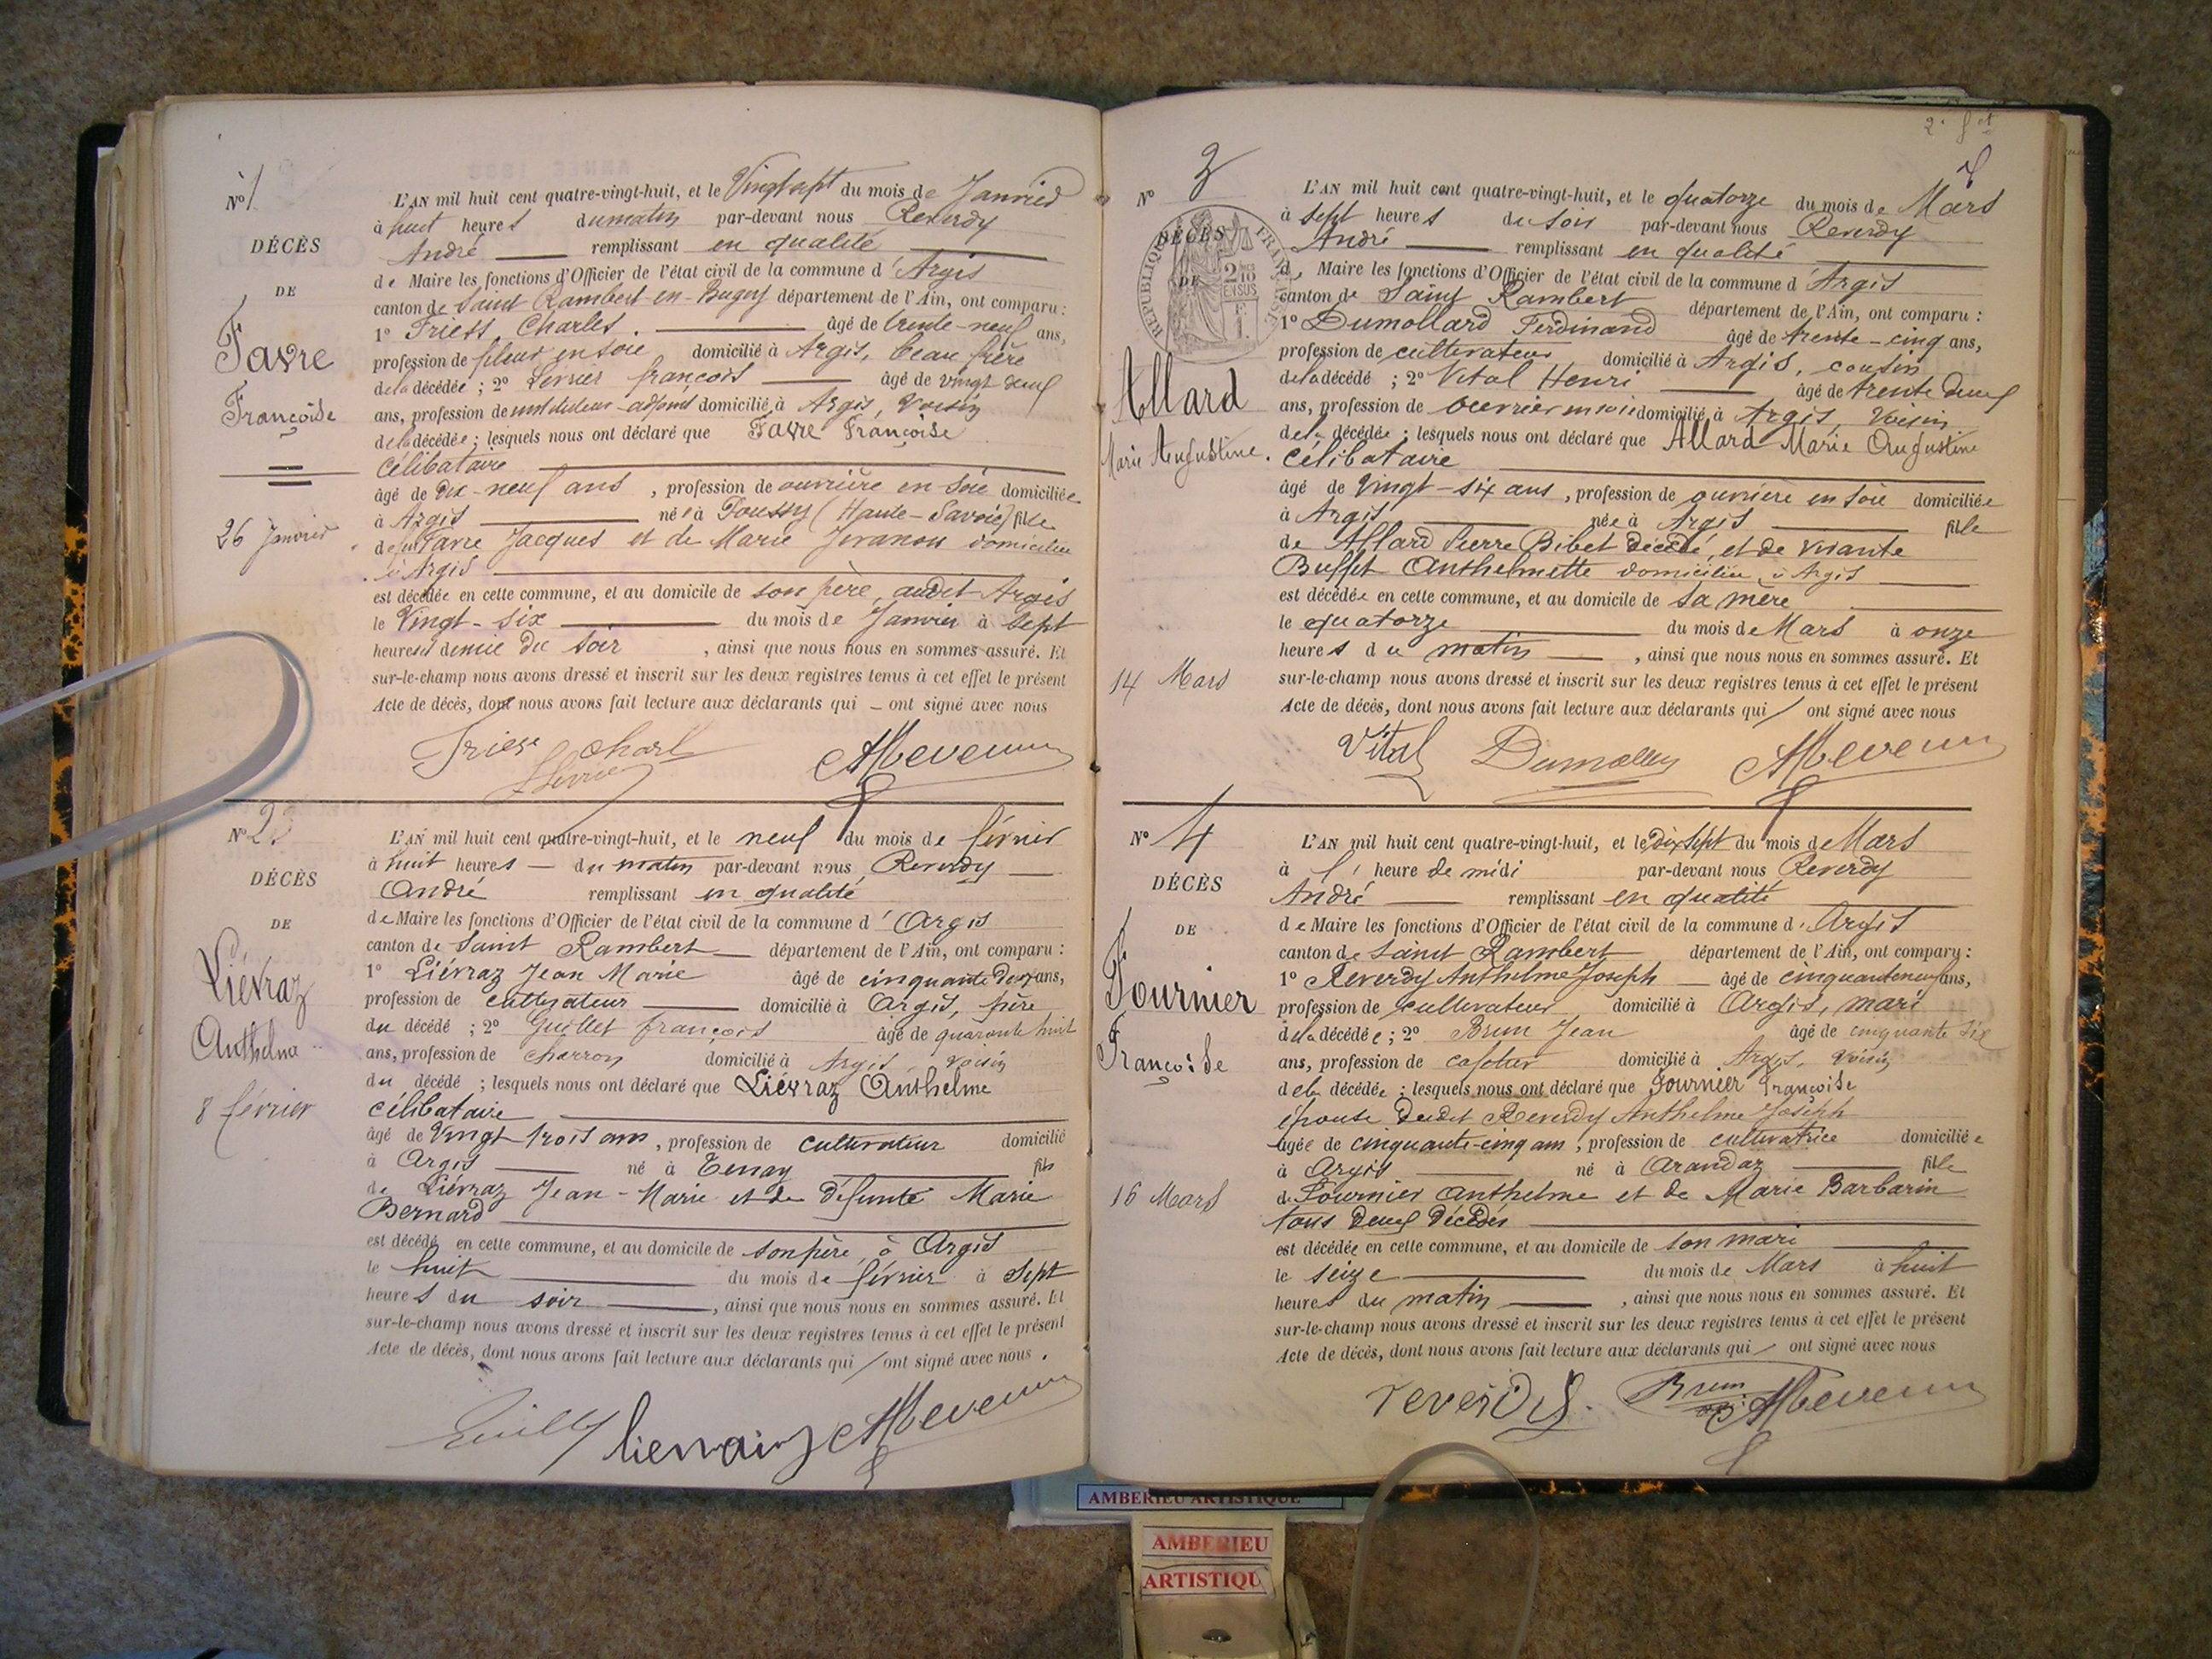 N° 1
DÉCÈS
DE
Favre
Françoise
26 Janvier
L'AN mil huit cent quatre-vingt-huit, et le Vingt sept du mois de Janvier
à huit heures du matin par-devant nous Reverdy
André remplissant en qualité
de Maire les fonctions d'Officier de l'état civil de la commune d'Argis
canton de Saint Rambert-en-Bugey département de l'Ain, ont comparu :
1° Friess Charles. âgé de trente-neuf ans,
profession de fileur en soie domicilié à Argis, beau frère
de la décédée ; 2° françois âgé de vingt deux
ans, profession de instituteur-adjoint domicilié à Argis, voisin
de la décédée ; lesquels nous ont déclaré que Favre Françoise
Célibataire
âgé de dix-neuf ans, profession de ouvrière en soie domiciliée
à Argis née à Doussy (Haute-Savoie) fille
de feu Favre Jacques et de Marie domiciliée
à Argis
est décédée en cette commune, et au domicile de son père, audit Argis
le Vingt-six du mois de Janvier à sept
heures et demie du soir, ainsi que nous nous en sommes assuré. Et
sur-le-champ nous avons dressé et inscrit sur les deux registres tenus à cet effet le présent
Acte de décès, dont nous avons fait lecture aux déclarants qui ont signé avec nous
Friess Charl
N° 2
DÉCÈS
DE
Liévraz
Anthelme
8 février
L'AN mil huit cent quatre-vingt-huit, et le neuf du mois de février
à huit heures du matin par-devant nous Reverdy
André remplissant en qualité
de Maire les fonctions d'Officier de l'état civil de la commune d'Argis
canton de Saint Rambert département de l'Ain, ont comparu :
1° Liévraz Jean Marie âgé de cinquante deux ans,
profession de cultivateur domicilié à Argis, père
du décédé ; 2° Guillet françois âgé de quarante huit
ans, profession de charron domicilié à Argis, voisin
du décédé ; lesquels nous ont déclaré que Liévraz Anthelme
célibataire
âgé de Vingt trois ans, profession de cultivateur domicilié
à Argis né à Tenay fils
de Liévraz Jean-Marie et de défunte Marie
Bernard
est décédé en cette commune, et au domicile de son père, à Argis
le huit du mois de février à sept
heures du soir, ainsi que nous nous en sommes assuré. Et
sur-le-champ nous avons dressé et inscrit sur les deux registres tenus à cet effet le présent
Acte de décès, dont nous avons fait lecture aux déclarants qui ont signé avec nous.
N° 3
DÉCÈS
DE
RÉPUBLIQUE FRANÇAISE
2/10 EN SUS
Allard
Marie Augustine.
14 Mars
L'AN mil huit cent quatre-vingt-huit, et le quatorze du mois de Mars
à sept heures du soir par-devant nous Reverdy
André remplissant en qualité
de Maire les fonctions d'Officier de l'état civil de la commune d'Argis
canton de Saint Rambert département de l'Ain, ont comparu :
1° Dumollard Ferdinand âgé de trente-cinq ans,
profession de cultivateur domicilié à Argis, cousin
de la décédé ; 2° Vital Henri âgé de trente deux
ans, profession de ouvrier en soie domicilié à Argis, Voisin
de la décédée ; lesquels nous ont déclaré que Allard Marie Augustine
célibataire
âgé de Vingt-six ans, profession de ouvrière en soie domiciliée
à Argis née à Argis fille
de Allard Pierre Bibet décédé, et de vivante
Buffet Anthelmette domiciliée à Argis
est décédée en cette commune, et au domicile de sa mère
le quatorze du mois de Mars à onze
heures du matin, ainsi que nous nous en sommes assuré. Et
sur-le-champ nous avons dressé et inscrit sur les deux registres tenus à cet effet le présent
Acte de décès, dont nous avons fait lecture aux déclarants qui ont signé avec nous
Vital
N° 4
DÉCÈS
DE
Fournier
Françoise
16 Mars
L'AN mil huit cent quatre-vingt-huit, et le dix sept du mois de Mars
à l' heure de midi par-devant nous Reverdy
André remplissant en qualité
de Maire les fonctions d'Officier de l'état civil de la commune d'Argis
canton de Saint Rambert département de l'Ain, ont comparu :
1° Reverdy Anthelme Joseph âgé de cinquante neuf ans,
profession de cultivateur domicilié à Argis, mari
de la décédée ; 2° Brun Jean âgé de cinquante six
ans, profession de domicilié à Argis, voisin
de la décédée ; lesquels nous ont déclaré que Fournier Françoise
épouse dudit Reverdy Anthelme Joseph
âgée de cinquante-cinq ans, profession de cultivatrice domiciliée
à Argis né à Arandaz fille
de Fournier Anthelme et de Marie Barbarin
tous deux décédés
est décédée en cette commune, et au domicile de son mari
le seize du mois de Mars à huit
heures du matin, ainsi que nous nous en sommes assuré. Et
sur-le-champ nous avons dressé et inscrit sur les deux registres tenus à cet effet le présent
Acte de décès, dont nous avons fait lecture aux déclarants qui ont signé avec nous
Brun
AMBERIEU ARTISTIQUE
AMBERIEU
ARTISTIQU